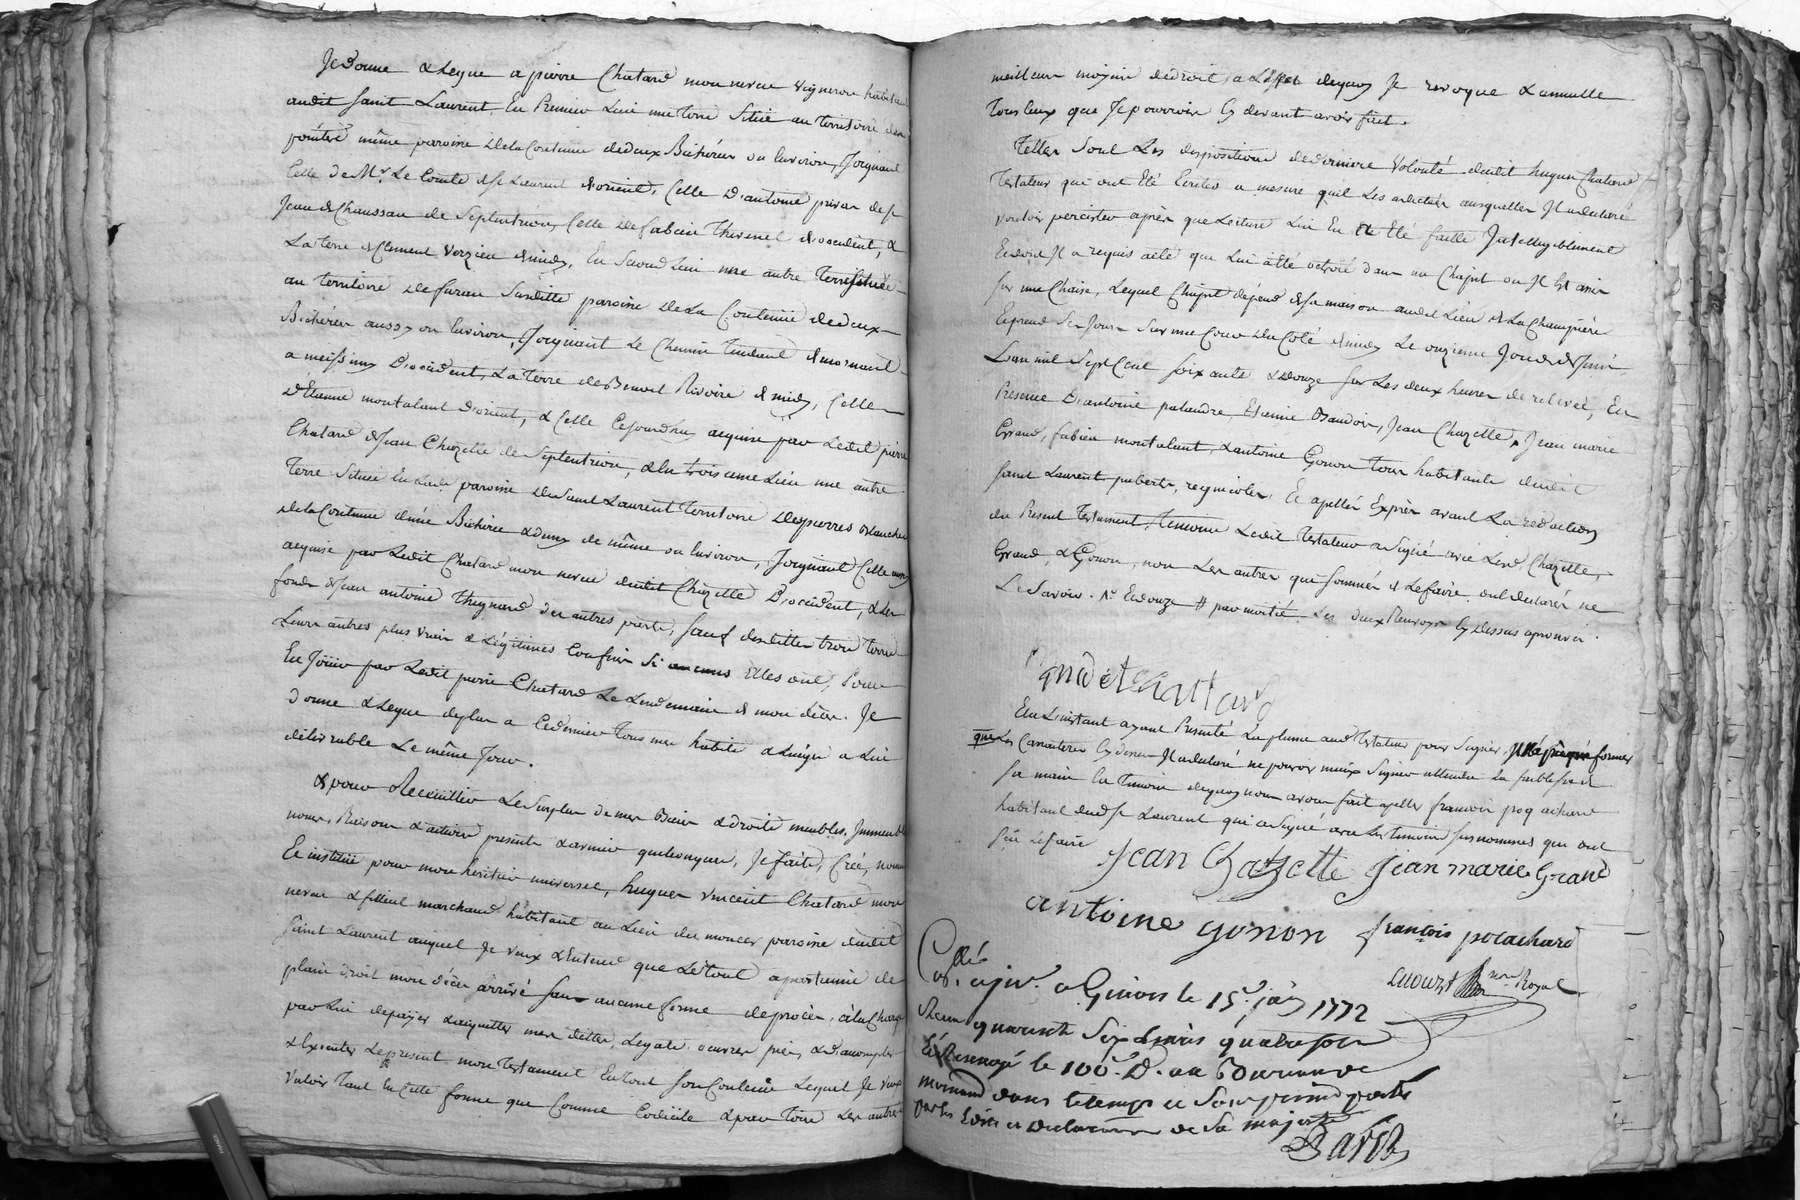 Je donne & legue a pierre Chatard mon neveu vigneron
audit Saint Laurent, En Premier Lieu une Terre Située au territoire
même paroisse de la Contenue de deux Bicherées ou Environ, Joignant
Celle de Mr. Le Comte de St Laurent d'orient, Celle D'antoine de St
Jean de Chaussan de Septentrion, Celle de fabien Thevenet d'occident, &
La terre de Clement Verzieu de midy, En Second Lieu une autre Terre Située
au territoire de Susditte paroisse de La Contenüe de deux
Bicherées aussy ou Environ, Joignant Le Chemin Tendant de mornant
a meissimy D'occident, La Terre de Benoit Rivoire de midy, Celle
D'Etienne montalant D'orient, & Celle Cejourdhuy acquise par Ledit pierre
Chatard de Jean Chazette de Septentrion, & En troisieme Lieu une autre
Terre Située En Ladte paroisse de Saint Laurent Territoire des pierres blanches
de la Contenue d'une Bicherée & demy de même ou Environ, Joignant Celle
acquise par Ledit Chatard mon neveu dudit Chazette D'occident, & Les
fonds de Jean antoine Theynard des autres parts, Sauf desdittes trois Terres
Leurs autres plus vrais & Légitimes Confins Si aucuns Elles ont, Pour
En Joüir par Ledit pierre Chatard Le Lendemain de mon décès. Je
donne & Legue de plus a Ce dernier Tous mes habits & Linges a Lui
délivrable Le même Jour.
& pour Recueillir Le Surplus de mes Biens & droits meubles, Immeubles
noms, Raisons & actions présents & avenir quelconques, Je faits, Créé, nomme
Et institüe pour mon heritier universel, hugues vincent Chatard mon
neveu & filleul marchand habitant au Lieu du paroisse dudit
Saint Laurent auquel Je veux & Entend que Le Tout apartienne de
plain droit mon décès arrivé Sans aucune forme de procès, à la Charge
par Lui de payer & aquitter mes dettes, Legats, oeuvres pies, & D'accomplir
& Executer Le present mon Testament En tout Son Contenüe Lequel Je veux
valoir Tant En Cette forme que Comme Codicile & par Tous Les autres
meilleurs moyens de droit, a L'effet de quoy Je revoque & annulle
Tous Ceux que Je pourrois Cy devant avoir fait.
Telles Sont Les dispositions de derniere volonté dudit hugues Chatard
Testateur qui ont Eté Ecrites a mesure qu'il Les a dictées ausquelles Il a declaré
vouloir percister après que Lecture Lui En a Eté faitte Intelligiblement
Et dont Il a requis acte que Lui a Eté octroié dans un Chapit ou Il Est assis
Sur une Chaise, Lequel Chapit dépend de Sa maison audit Lieu de La Champière
Et prend Ses Jours Sur une Cour du Coté de midy Le onzieme Jour de Janvier
L'an mil Sept Cent Soixante & douze Sur Les deux heures de relevée, En
Présence D'antoine palandre Etienne Baudoin, Jean Chazette, Jean marie
Grand, fabien montalant, & antoine Gonon tous habitants dudit
Saint Laurent puberts, regnicoles, Et apellés Exprès avant La redaction
du Present Testament, Temoins Ledit Testateur a Signé avec Lesd. Chazette,
Grand, & Gonon, non Les autres que Sommés de Le faire ont declarés ne
Le Savoir. Et douze # par moitié Les deux Renvoys Cy dessus aprouvés.
En L'instant ayant Presenté La plume aud Testateur pour Signer, former
que Les Caractères Cy dessus Il a declaré ne pouvoir mieux Signer attendu La faiblesse de
Sa main En Temoin de quoy nous avons fait apeller francois pocachard
habitant dudt St Laurent qui a Signé avec Les temoins Susnommés qui ont
Sçu Le faire
Jean Chazette Jean marie Grand
antoine gonon françois pocachard
Nore Royal
Givors le 15e janv 1772
Reçu quarante Six Livres quatre sols
Et renvoyé le 100e D. au Bureau de
mornant dans le temps et Sous peines portés
par les Edits et Declarations de Sa majesté